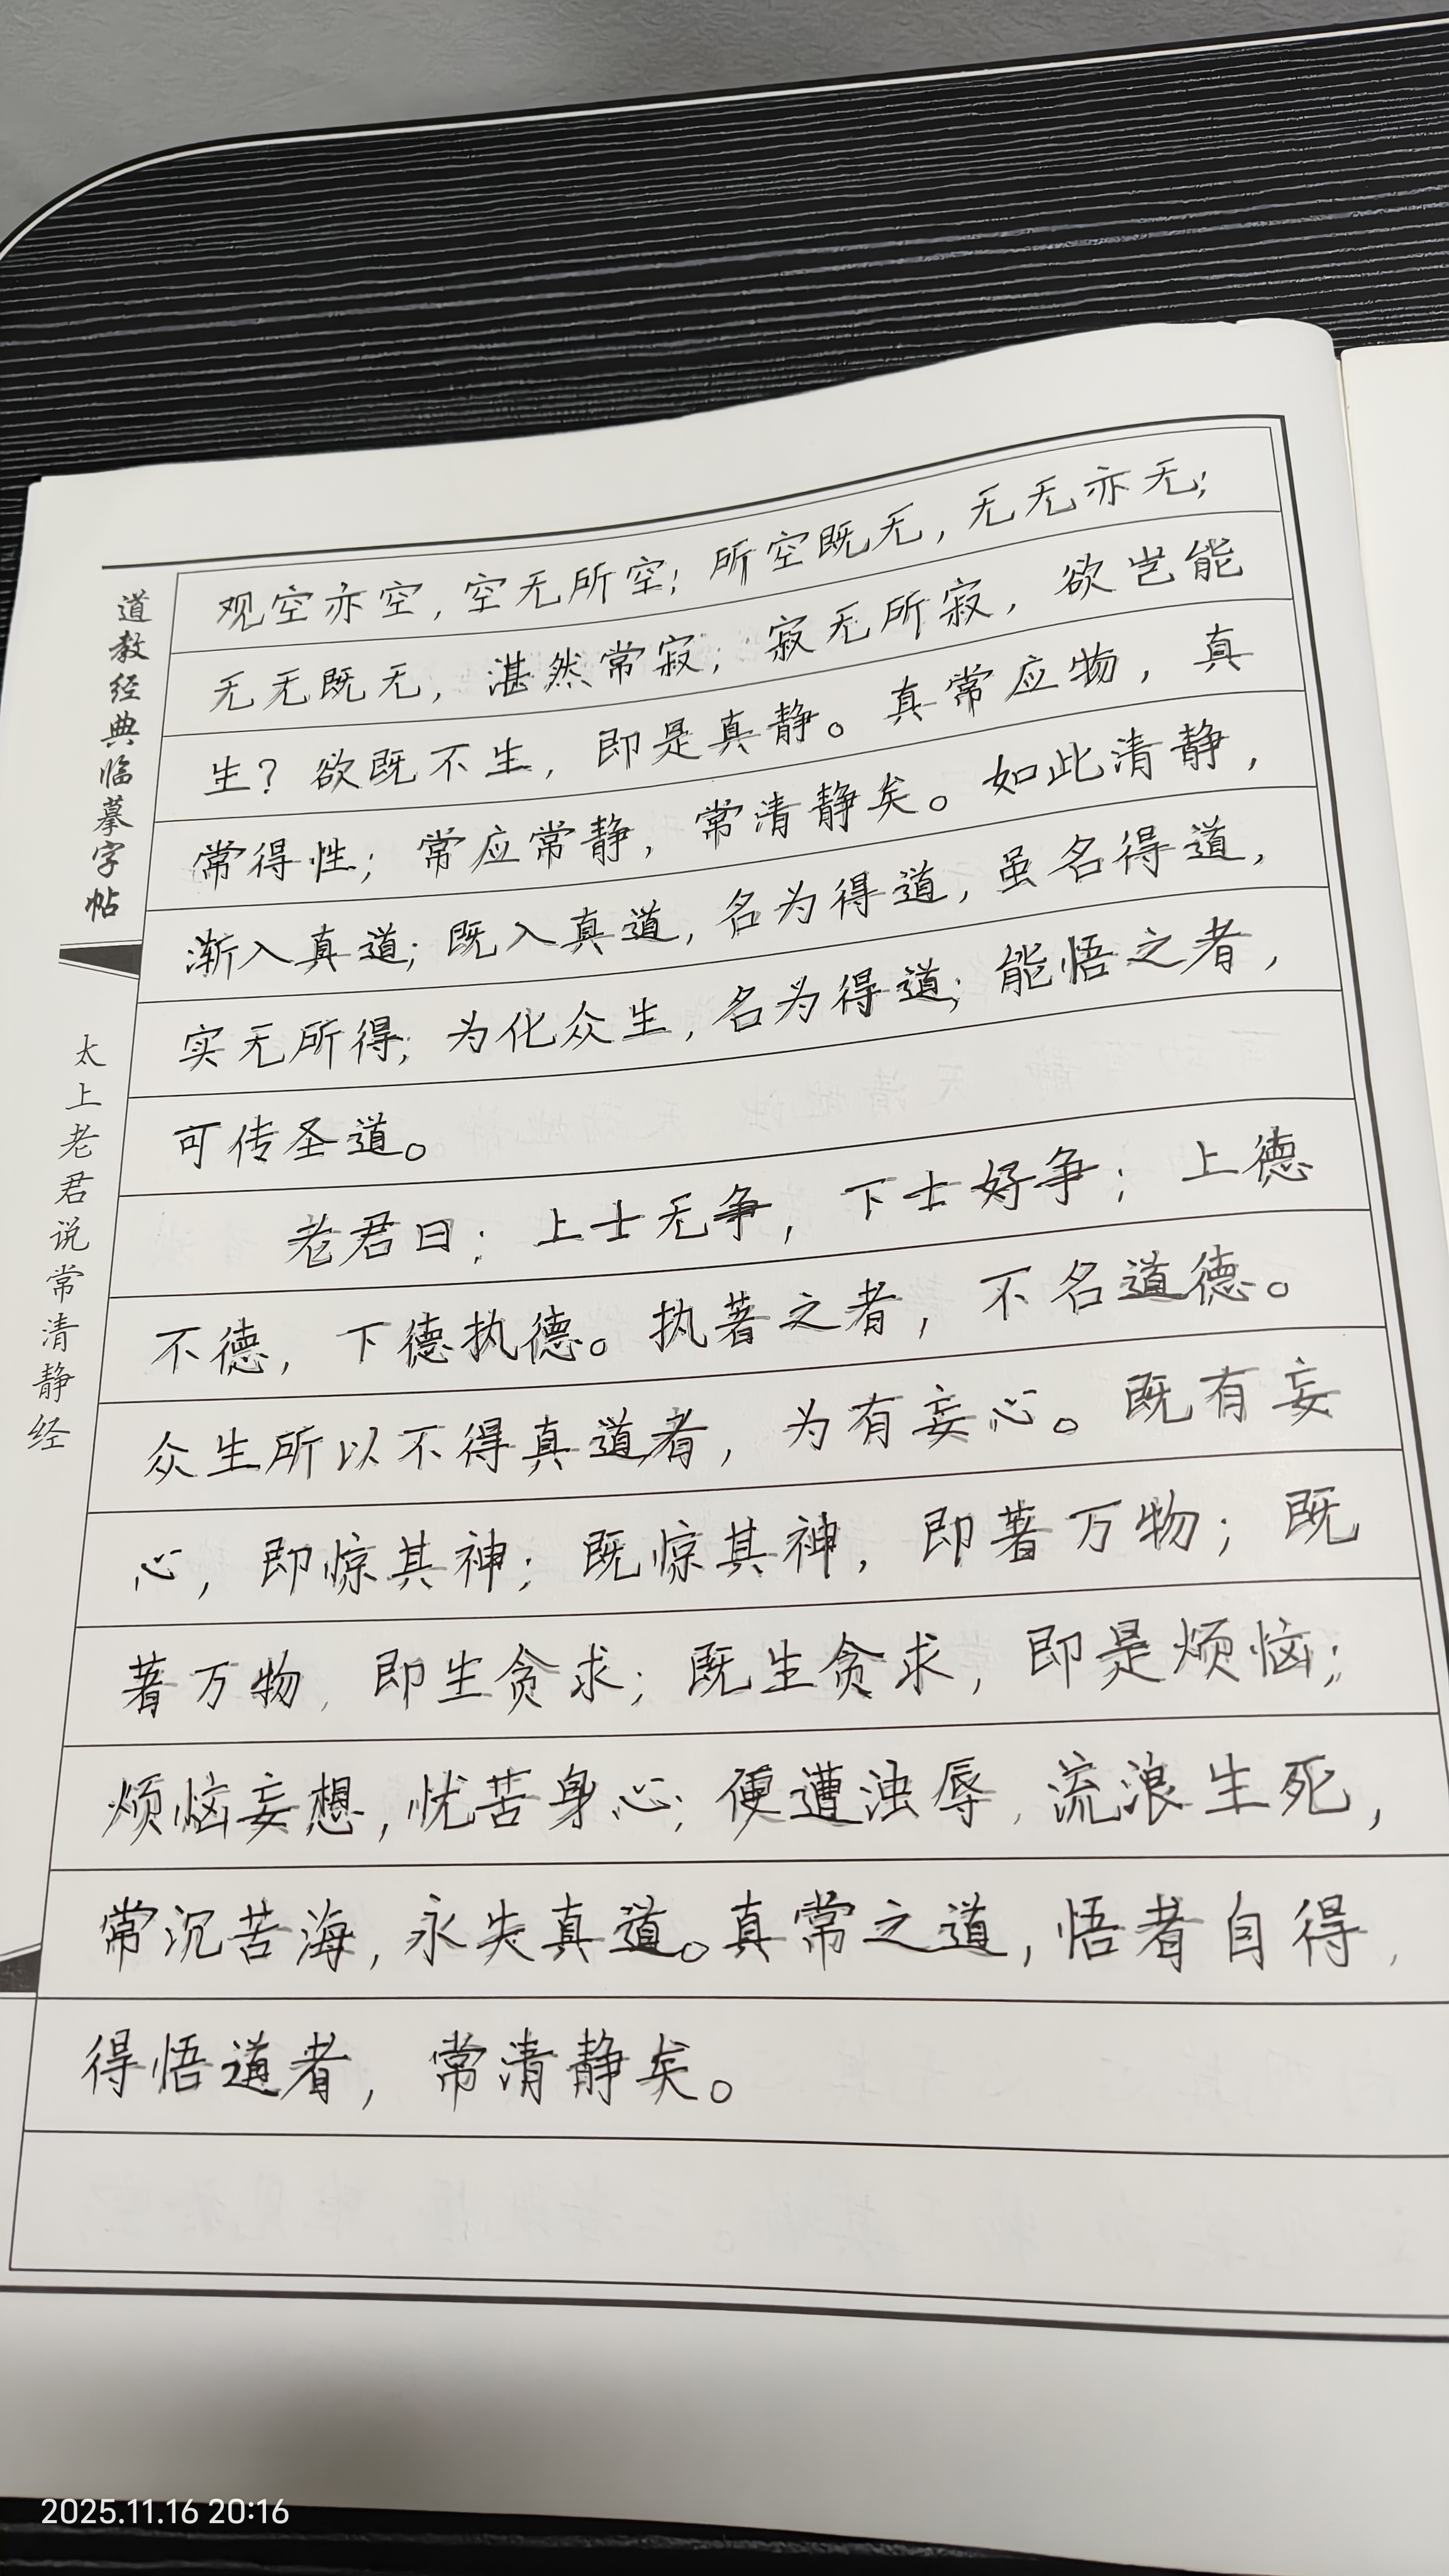 道教经典临摹字帖
太上老君说常清静经
观空亦空，空无所空；所空既无，无无亦无；
无无既无，湛然常寂；寂无所寂，欲岂能
生？欲既不生，即是真静。真常应物，真
常得性；常应常静，常清静矣。如此清静，
渐入真道；既入真道，名为得道，虽名得道，
实无所得；为化众生，名为得道；能悟之者，
可传圣道。
老君曰：上士无争，下士好争；上德
不德，下德执德。执著之者，不名道德。
众生所以不得真道者，为有妄心。既有妄
心，即惊其神；既惊其神，即著万物；既
著万物，即生贪求；既生贪求，即是烦恼；
烦恼妄想，忧苦身心；便遭浊辱，流浪生死，
常沉苦海，永失真道。真常之道，悟者自得，
得悟道者，常清静矣。
2025.11.16 20:16